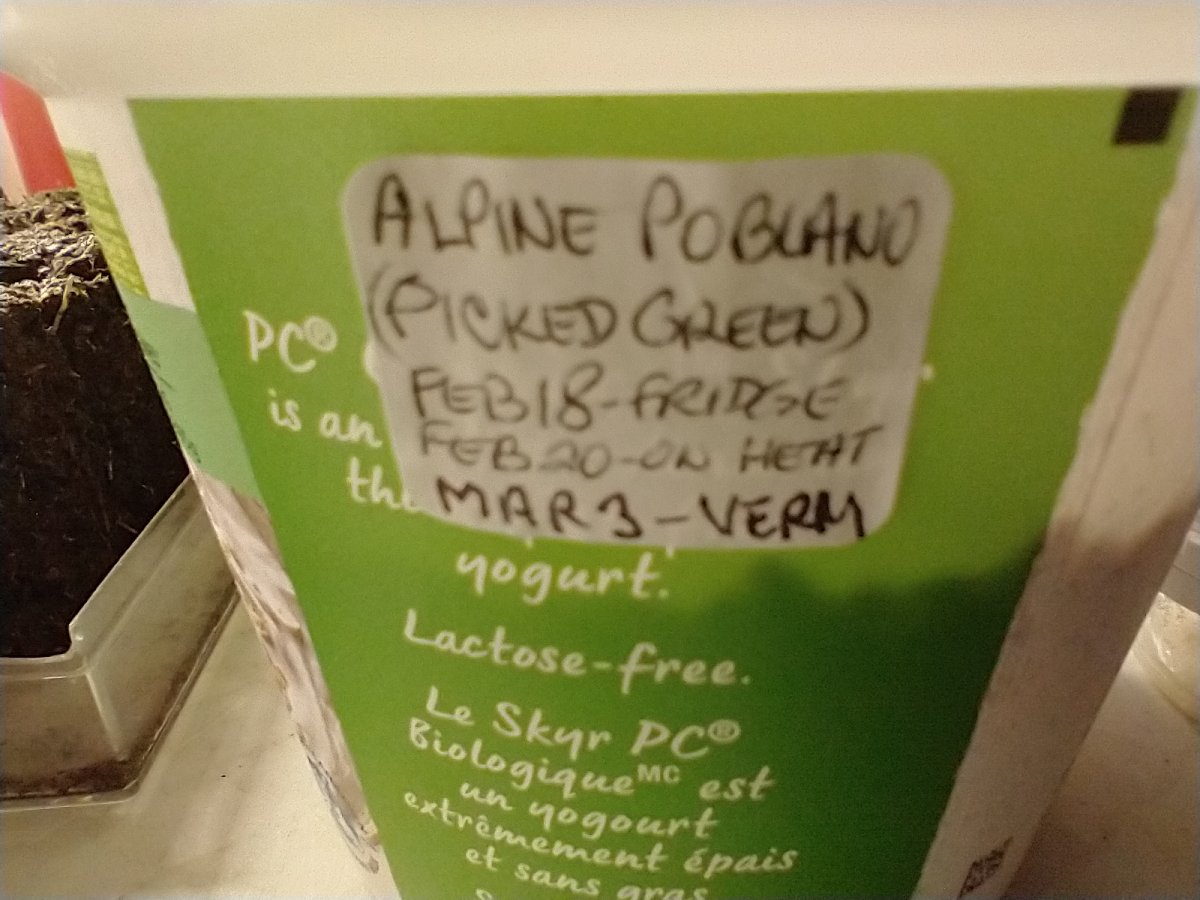 ALPINE POBLANO
(PICKED GREEN)
FEB 18 - FRIDGE
FEB 20 - ON HEAT
MAR 3 - VERM
PC®
is an
the
yogurt.
Lactose-free.
Le Skyr PC®
Biologiqueᴹᶜ est
un yogourt
extrêmement épais
et sans gras